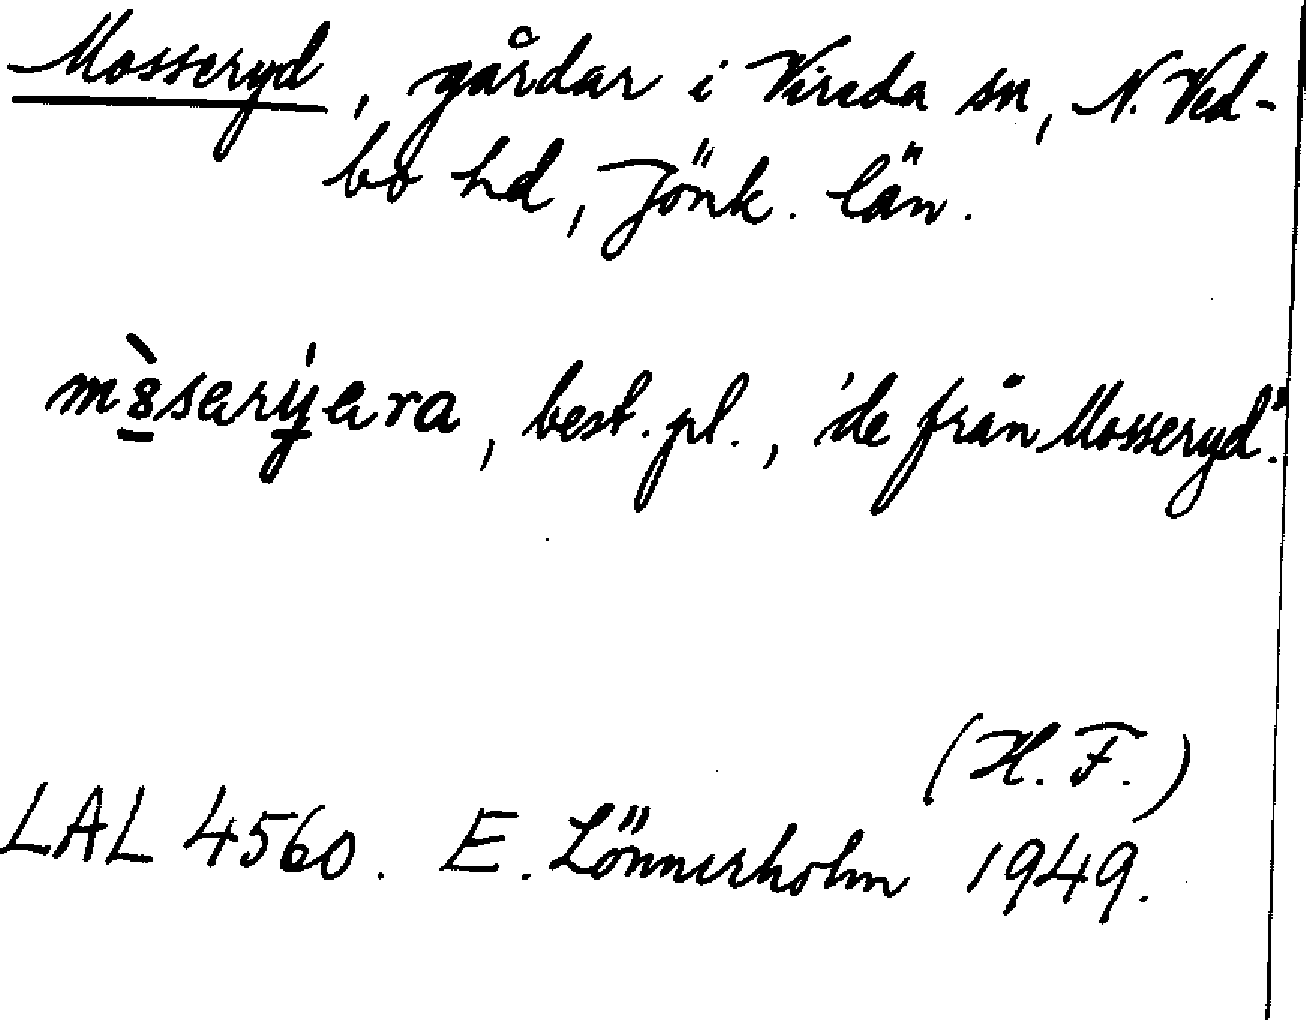 Mosseryd, gårdar i Vireda sn, N. Ved-
bo hd, Jönk. län.
m8̱̀serýera, best. pl., "de från Mosseryd".
(H. F.)
LAL 4560. E. Lönnerholm 1949.